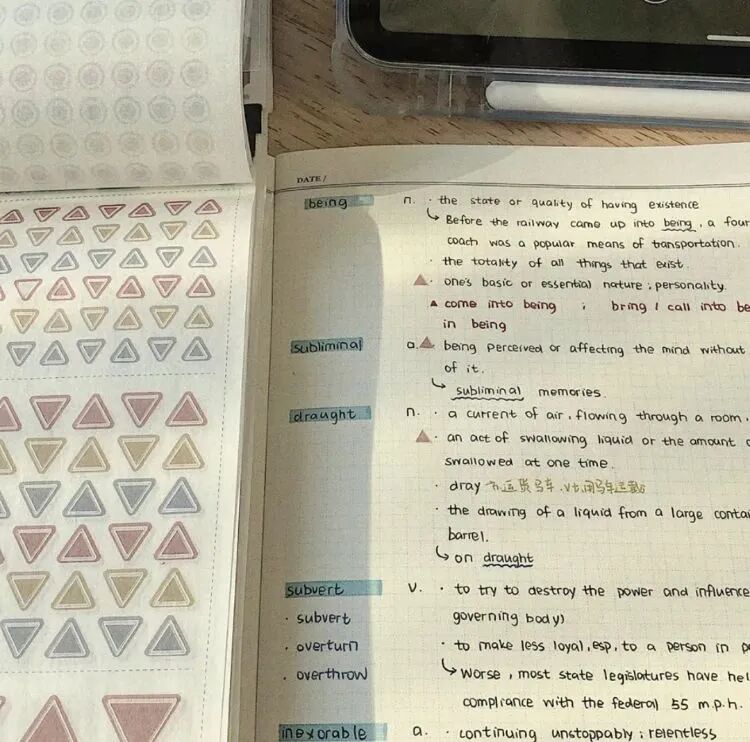 DATE /
being n. · the state or quality of having existence
Before the railway came up into being, a four
coach was a popular means of tansportation.
· the totality of all things that exist.
· one's basic or essential nature; personality.
come into being ; bring / call into be
in being
subliminal a. being perceived or affecting the mind without
of it.
subliminal memories.
draught n. · a current of air, flowing through a room.
· an act of swallowing liquid or the amount
swallowed at one time.
· dray n.运货马车. vt.用马车运输
· the drawing of a liquid from a large contai
barrel.
on draught
subvert v. · to try to destroy the power and influence
· subvert governing body)
· overturn · to make less loyal, esp, to a person in po
· overthrow Worse, most state legislatures have hel
compliance with the federal 55 m.p.h.
inexorable a. · continuing unstoppably; relentless